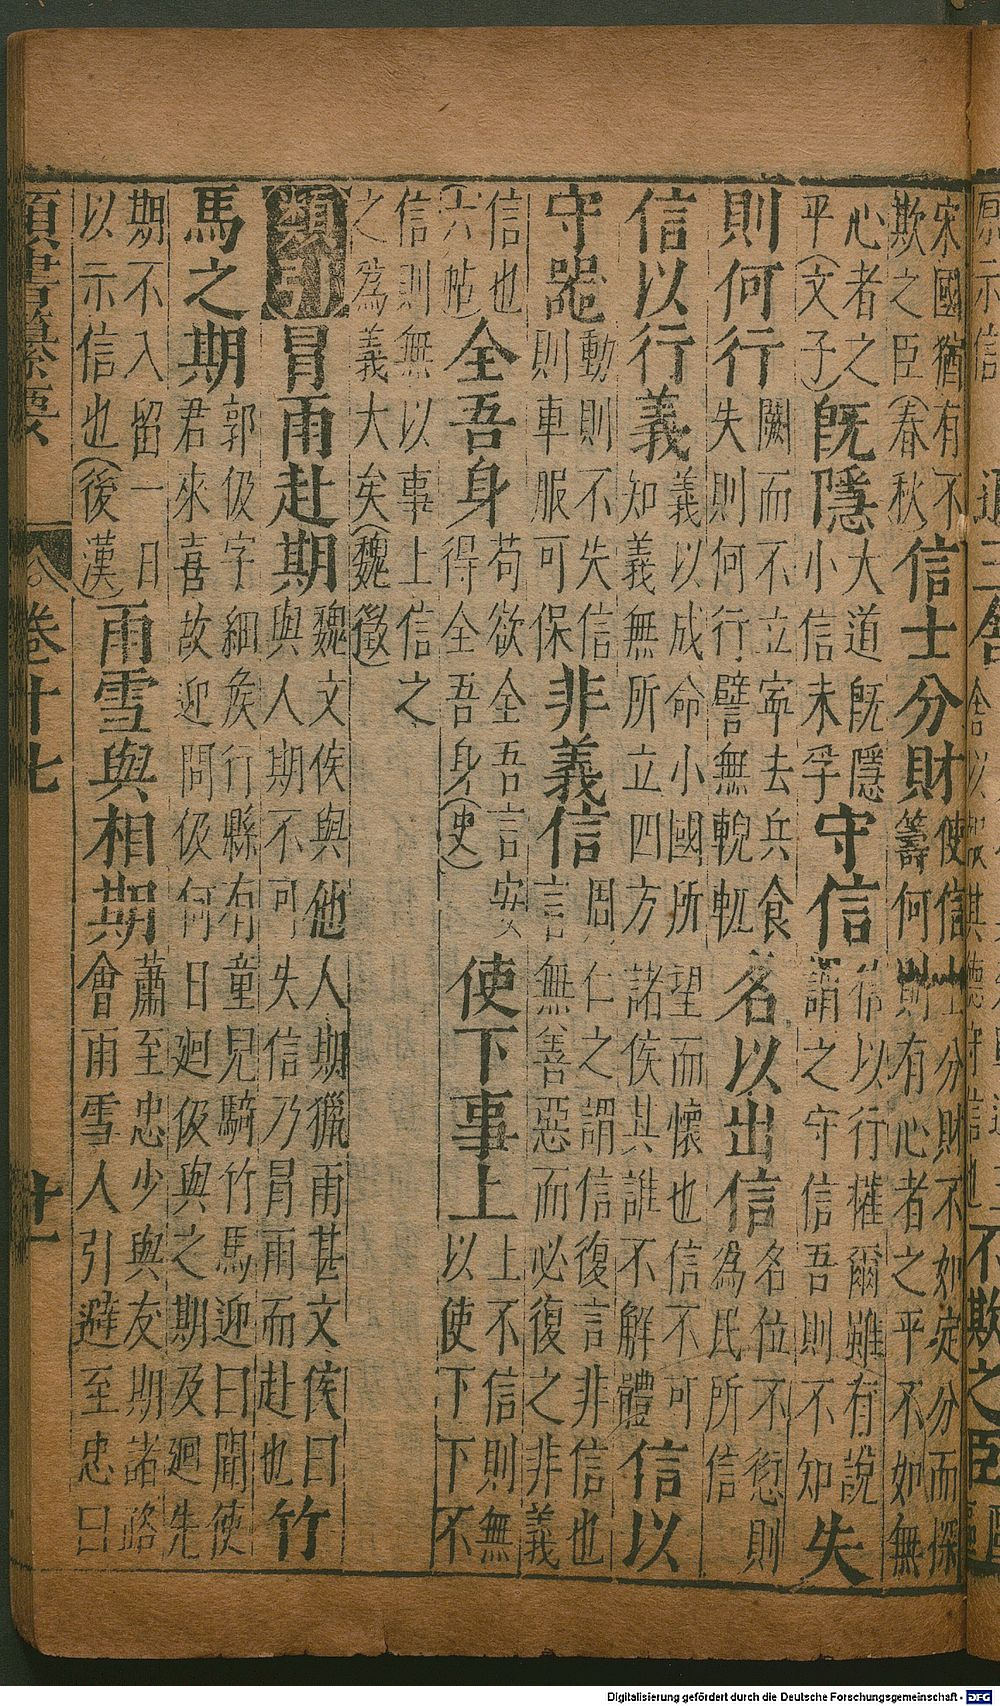 宋國猶有不欺之臣(春秋)信士分財使信士分財不如定分而探籌何則有心者之平不如無
心者之平(文子)旣隱大道旣隱小信未孚守信以行權爾雖有說謂之守信吾則不知失
則何行闕而不立寧去兵食失則何行譬無輗軏名以出信名位不愆則為民所信
信以行義義以成命小國所望而懷也信不可知義無所立四方諸侯其誰不解體信以
守器動則不失信則車服可保非義信周仁之謂信復言非信也言無善惡而必復之非義
信也(六帖)全吾身苟欲全吾言安得全吾身(史)使下事上上不信則無以使下下不
信則無以事上信之之為義大矣(魏徵)
類引冒雨赴期魏文侯與他人期獵雨甚文侯曰與人期不可失信乃冒雨而赴也竹
馬之期郭伋字細侯行縣有童兒騎竹馬迎曰聞使君來喜故迎問伋何日廻伋與之期及廻先
期不入留一日以示信也(後漢)雨雪與相期蕭至忠少與友期諸路會雨雪人引避至忠曰
類書纂要 卷廿七 廿一
Digitalisierung gefördert durch die Deutsche Forschungsgemeinschaft - DFG